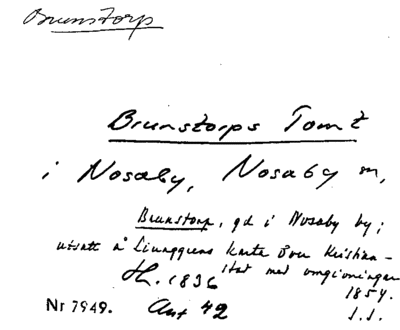 Brunstorp
Brunstorps Tomt
i Nosaby, Nosaby m,
Brunstorp, gd i Nosaby by;
utsatt å Ljunggrens karta över Kristian-
stad med omgivningar
Ht. 1836
1854.
Nr 7949. Ant 42
J.J.